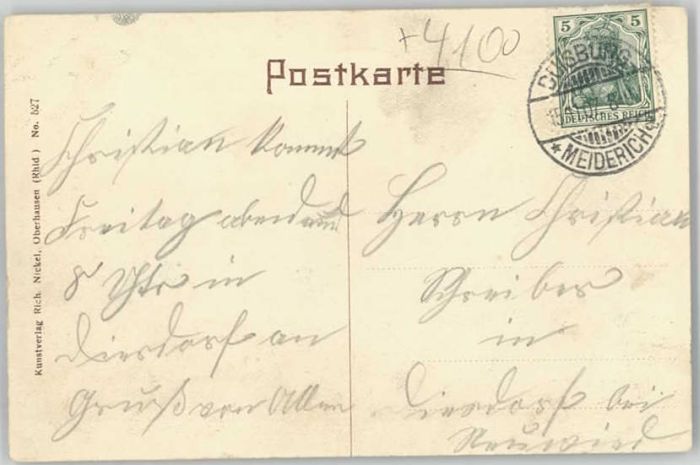 +4100
Postkarte
5 5
DEUTSCHES REICH
DUISBURG
* MEIDERICH
Kunstverlag Rich. Nickel, Oberhausen (Rhld.) No. 527
Christian kommt
Freitag abend
8 Uhr in
Dierdorf an
Gruß von Allen
Herrn Christian
Schreiber
in
Dierdorf bei
Neuwied